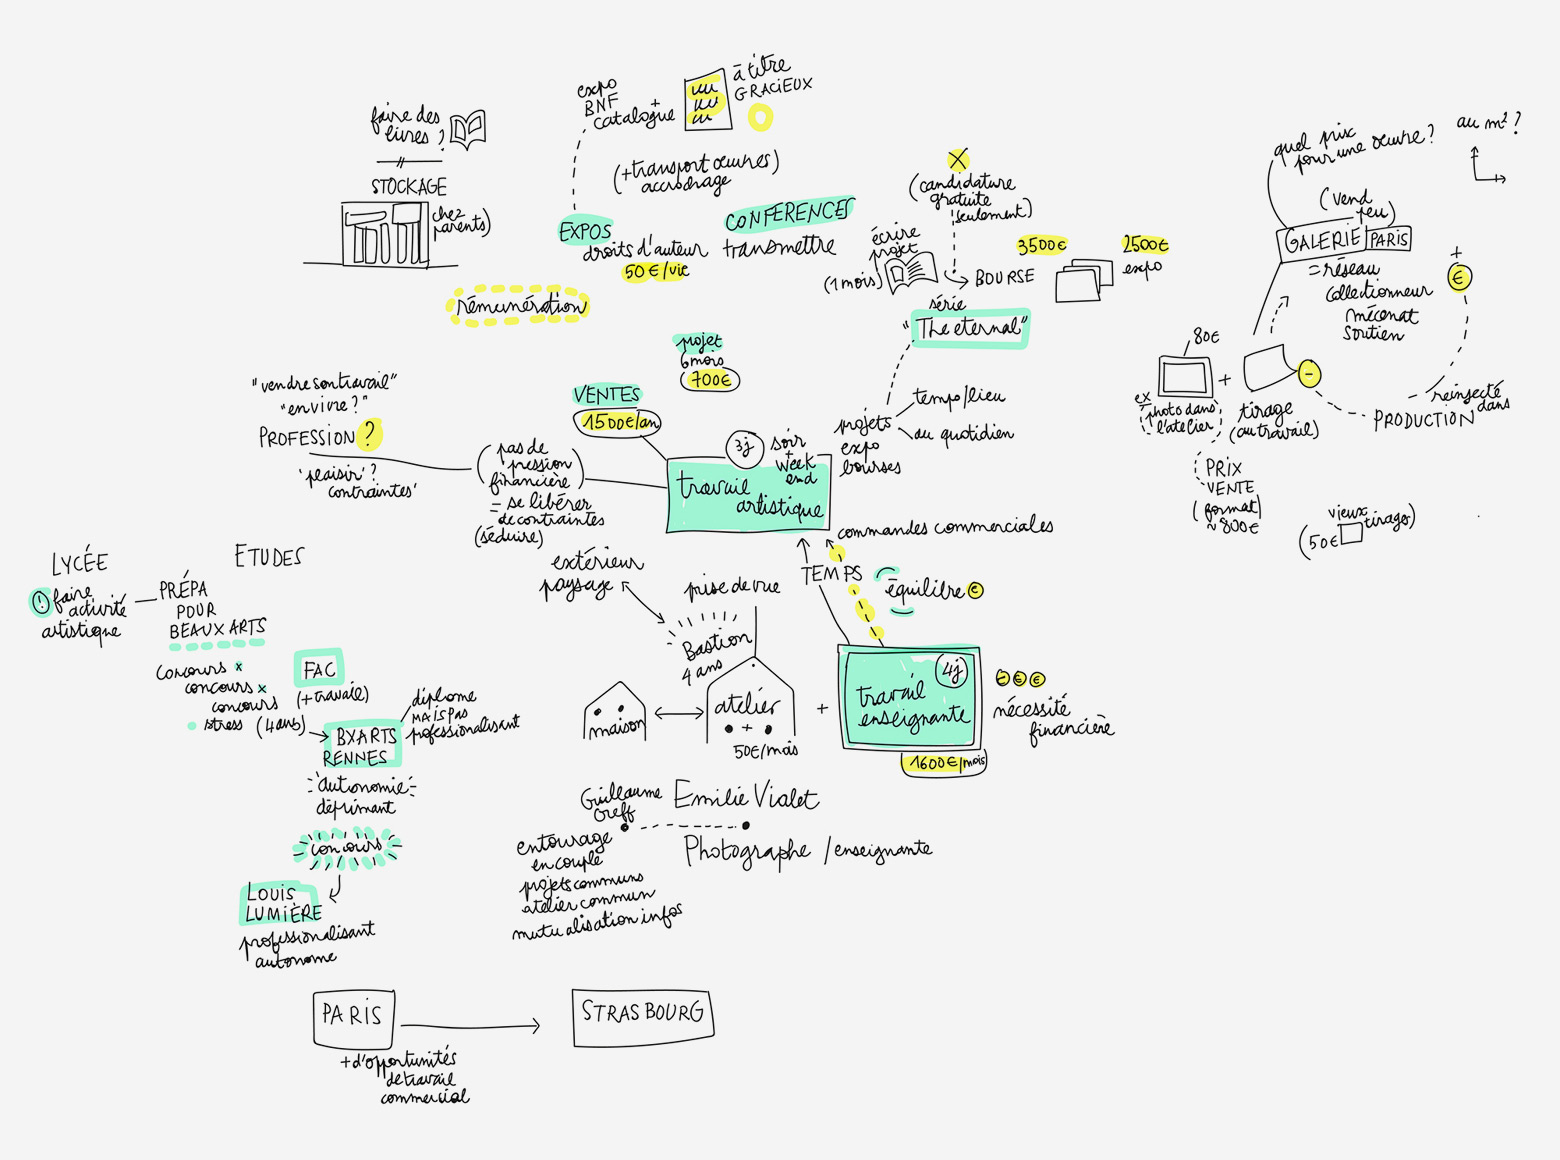 faire des
livres ?
STOCKAGE
(chez
parents)
expo
BNF
+
catalogue
à titre
GRACIEUX
(+transport œuvres)
accrochage
EXPOS
droits d'auteur
50€/vie
CONFÉRENCES
transmettre
rémunération
X
(candidature
gratuite
seulement)
écrire
projet
(1 mois)
BOURSE
3500€
2500€
expo
série
"The eternal"
quel prix
pour une œuvre ?
au m² ?
(vend
peu)
GALERIE PARIS
= réseau
collectionneur
mécénat
soutien
+
€
80€
+
-
ex
photo dans
l'atelier
tirage
(au travail)
PRODUCTION
réinjecté
dans
PRIX
VENTE
(format)
~800€
vieux
(50€ tirage)
projet
6 mois
700€
VENTES
1500€/an
"vendre son travail"
"en vivre ?"
PROFESSION ?
'plaisir' ?
contraintes'
(pas de
pression
financière)
= se libérer
de contraintes
(séduire)
3j
soir
week
end
travail
artistique
projets
expo
bourses
temps/lieu
au quotidien
commandes commerciales
TEMPS
équilibre €
LYCÉE
ETUDES
! faire
activité
artistique
PRÉPA
POUR
BEAUX ARTS
concours x
concours x
concours
stress
(4 ans)
FAC
(+travail)
BXARTS
RENNES
diplome
MAIS PAS
professionalisant
autonomie
déprimant
concours
LOUIS
LUMIÈRE
professionalisant
autonome
PARIS
STRASBOURG
+ d'opportunités
de travail
commercial
extérieur
paysage
prise de vue
Bastion
4 ans
maison
atelier
+
50€/mois
+
4j
travail
enseignante
1600€/mois
€ € €
nécessité
financière
Guillaume
Greff
Emilie Vialet
Photographe /enseignante
entourage
en couple
projets communs
atelier commun
mutualisation infos